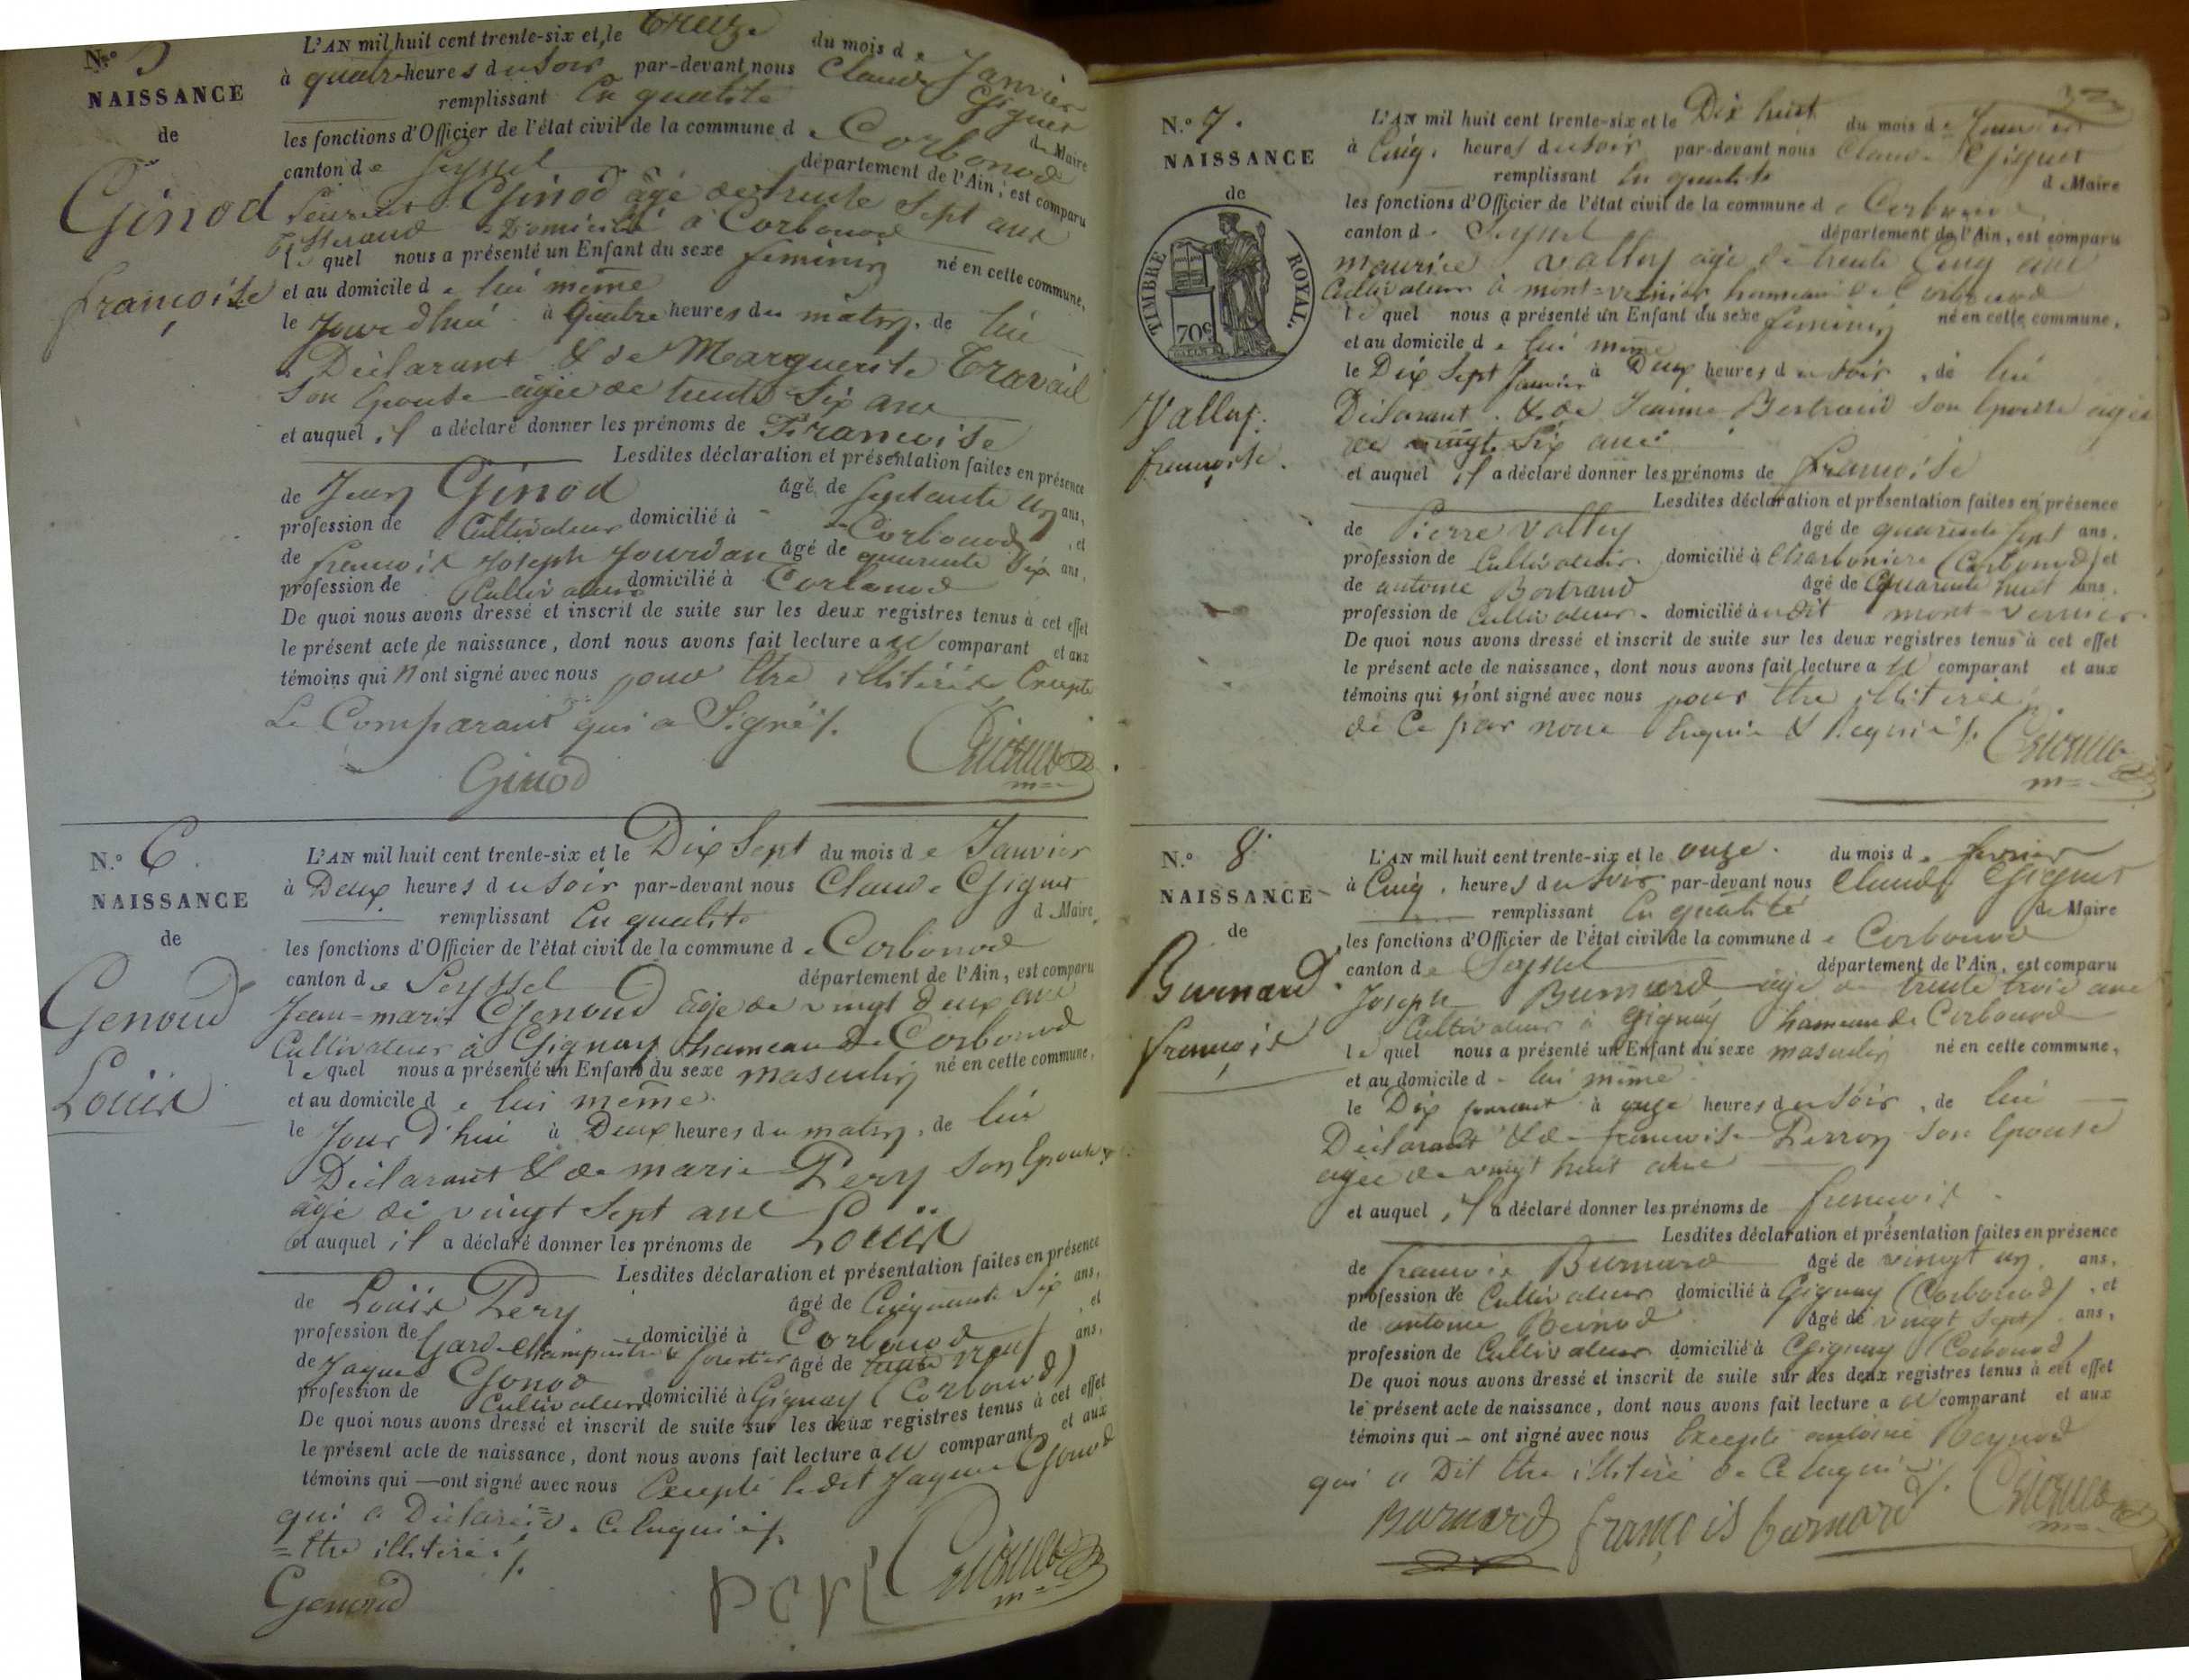 N.º 5
NAISSANCE
de
Ginod
françoise
L'AN mil huit cent trente-six et le treize du mois de Janvier
à quatre heures du soir par-devant nous Claude Giguet
remplissant en qualité de Maire
les fonctions d'Officier de l'état civil de la commune de Corbonod
canton de Seyssel département de l'Ain, est comparu
Laurent Ginod âgé de trente Sept ans
Domicilié à Corbonod
lequel nous a présenté un Enfant du sexe féminin né en cette commune,
et au domicile de lui même
le Jour d'hui à Quatre heures du matin, de lui
Déclarant & de Marguerite Travail
Son Epouse agée de trente Six ans
et auquel il a déclaré donner les prénoms de Françoise
Lesdites déclaration et présentation faites en présence
de Jean Ginod âgé de Septante un ans,
profession de Cultivateur domicilié à Corbonod, et
de françois Joseph Jourdan âgé de quarente Six ans,
profession de Cultivateur domicilié à Corbonod
De quoi nous avons dressé et inscrit de suite sur les deux registres tenus à cet effet
le présent acte de naissance, dont nous avons fait lecture au comparant et aux
témoins qui n'ont signé avec nous pour être illitérés Excepté
Le Comparant qui a Signé ./.
Ginod
N.º 6.
NAISSANCE
de
Genoud
Louis
L'AN mil huit cent trente-six et le Dix Sept du mois de Janvier
à Deux heures du soir par-devant nous Claude Giguet
remplissant en qualité de Maire
les fonctions d'Officier de l'état civil de la commune de Corbonod
canton de Seyssel département de l'Ain, est comparu
Jean-marie Genoud âgé de vingt deux ans
Cultivateur à Gignay hameau de Corbonod
lequel nous a présenté un Enfant du sexe masculin né en cette commune,
et au domicile de lui même.
le Jour d'hui à Deux heures du matin, de lui
Déclarant & de marie Pery son Epouse
âgé de vingt Sept ans
et auquel il a déclaré donner les prénoms de Louis
Lesdites déclaration et présentation faites en présence
de Louis Pery âgé de Cinquante Six ans,
profession de Garde Champêtre & forestier domicilié à Corbonod, et
de Jaques Gonod âgé de neuf ans,
profession de Cultivateur domicilié à Gignay (Corbonod)
De quoi nous avons dressé et inscrit de suite sur les deux registres tenus à cet effet
le présent acte de naissance, dont nous avons fait lecture au comparant et aux
témoins qui — ont signé avec nous Excepté le dit Jaques Gonod
qui a Déclaré de ce Enquis
= être illitéré ./.
Genoud
N.º 7.
NAISSANCE
de
TIMBRE ROYAL.
70c
Vallet
françoise.
L'AN mil huit cent trente-six et le Dix huit du mois de Janvier
à Cinq heures du soir par-devant nous Claude Giguet
remplissant en qualité de Maire
les fonctions d'Officier de l'état civil de la commune de Corbonod
canton de Seyssel département de l'Ain, est comparu
maurice âgé de trente Cinq ans
Cultivateur à mont=vernier hameau de Corbonod
lequel nous a présenté un Enfant du sexe féminin né en cette commune,
et au domicile de lui même
le Dix Sept Janvier à Deux heures du soir, de lui
Déclarant & de Jeanne Bertrand son Epouse agée
de vingt Six ans
et auquel il a déclaré donner les prénoms de françoise
Lesdites déclaration et présentation faites en présence
de Pierre âgé de quarente Sept ans,
profession de Cultivateur domicilié à Charboniere (Corbonod) et
de antoine Bertrand âgé de Quarente huit ans,
profession de Cultivateur domicilié à dit mont-vernier
De quoi nous avons dressé et inscrit de suite sur les deux registres tenus à cet effet
le présent acte de naissance, dont nous avons fait lecture au comparant et aux
témoins qui n'ont signé avec nous pour être illitérés
de Ce par nous Enquis & Requis ./.
N.º 8
NAISSANCE
de
Burnard
françois
L'AN mil huit cent trente-six et le onze du mois de fevrier
à Cinq heures du soir par-devant nous Claude Giguet
remplissant en qualité de Maire
les fonctions d'Officier de l'état civil de la commune de Corbonod
canton de Seyssel département de l'Ain, est comparu
Joseph Burnard âgé de trente trois ans
Cultivateur à Gignay hameau de Corbonod
lequel nous a présenté un Enfant du sexe masculin né en cette commune,
et au domicile de lui même
le Dix courant à onze heures du soir, de lui
Déclarant & de françoise Perron son Epouse
agée de vingt huit ans
et auquel il a déclaré donner les prénoms de françois
Lesdites déclaration et présentation faites en présence
de françois Burnard âgé de vingt un ans,
profession de Cultivateur domicilié à Gignay (Corbonod), et
de antoine âgé de vingt Sept ans,
profession de Cultivateur domicilié à Gignay (Corbonod)
De quoi nous avons dressé et inscrit de suite sur les deux registres tenus à cet effet
le présent acte de naissance, dont nous avons fait lecture au comparant et aux
témoins qui — ont signé avec nous Excepté antoine
qui a Dit être illitéré de Ce Enquis ./.
Burnard françois burnard